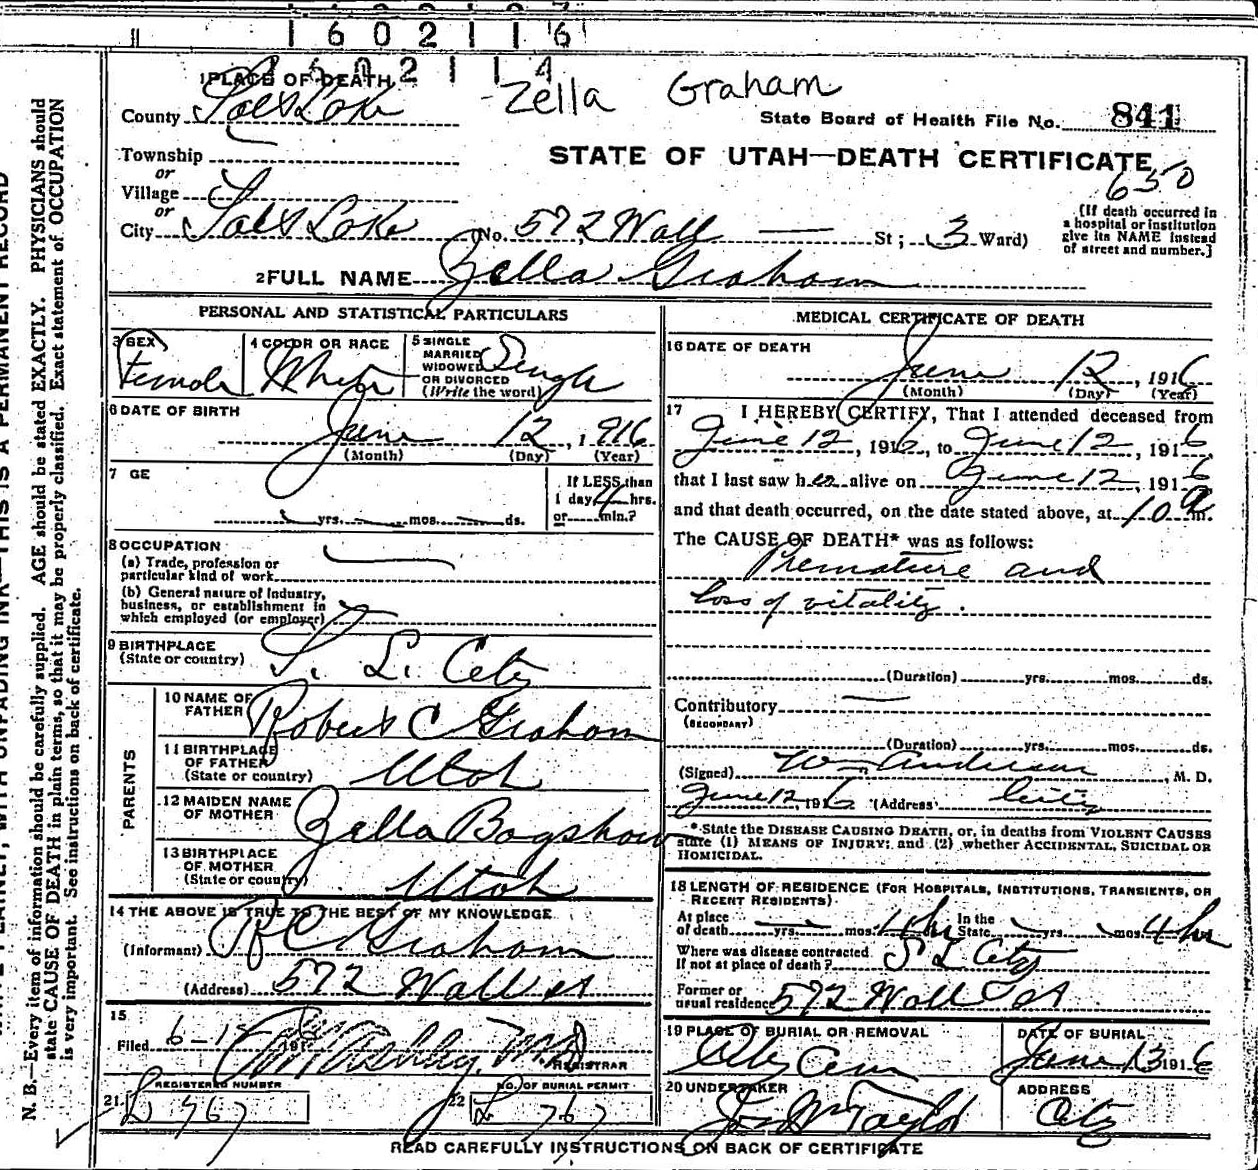 1602116
1602114
1 PLACE OF DEATH
Zella Graham
County Salt Lake
State Board of Health File No. 841
Township
STATE OF UTAH—DEATH CERTIFICATE
or
Village
650
or
City Salt Lake (No. 572 Wall — St; 3 Ward)
[If death occurred in
a hospital or institution
give its NAME instead
of street and number.]
2 FULL NAME Zella Graham
PERSONAL AND STATISTICAL PARTICULARS
3 SEX
Female
4 COLOR OR RACE
White
5 SINGLE
MARRIED
WIDOWED
OR DIVORCED
(Write the word)
Single
6 DATE OF BIRTH
June 12, 1916
(Month) (Day) (Year)
7 GE
yrs. mos. ds.
If LESS than
1 day 4 hrs.
or min.?
8 OCCUPATION
(a) Trade, profession or
particular kind of work
(b) General nature of Industry,
business, or establishment in
which employed (or employer)
9 BIRTHPLACE
(State or country) S. L. City
PARENTS
10 NAME OF
FATHER Robert C Graham
11 BIRTHPLACE
OF FATHER
(State or country) Utah
12 MAIDEN NAME
OF MOTHER Zella Bagshaw
13 BIRTHPLACE
OF MOTHER
(State or country) Utah
14 THE ABOVE IS TRUE TO THE BEST OF MY KNOWLEDGE
(Informant) R C Graham
(Address) 572 Wall st
15
Filed 6-1 191
REGISTRAR
REGISTERED NUMBER
21 L 767
NO. OF BURIAL PERMIT
22 L 767
MEDICAL CERTIFICATE OF DEATH
16 DATE OF DEATH
June 12, 1916
(Month) (Day) (Year)
17 I HEREBY CERTIFY, That I attended deceased from
June 12, 1916, to June 12, 1916
that I last saw her alive on June 12, 1916
and that death occurred, on the date stated above, at 10 a m.
The CAUSE OF DEATH* was as follows:
Premature and
loss of vitality.
(Duration) yrs. mos. ds.
Contributory —
(SECONDARY)
(Duration) yrs. mos. ds.
(Signed) Wm Anderson, M. D.
June 12, 1916 (Address) City
*State the DISEASE CAUSING DEATH, or, in deaths from VIOLENT CAUSES
state (1) MEANS OF INJURY; and (2) whether ACCIDENTAL, SUICIDAL OR
HOMICIDAL.
18 LENGTH OF RESIDENCE (FOR HOSPITALS, INSTITUTIONS, TRANSIENTS, OR
RECENT RESIDENTS)
At place
of death yrs. mos. 4 hr In the
State yrs. mos. 4 hr
Where was disease contracted
If not at place of death? S L City
Former or
usual residence 572 Wall St
19 PLACE OF BURIAL OR REMOVAL
City Cem
DATE OF BURIAL
June 13 1916
20 UNDERTAKER
Taylor
ADDRESS
City
READ CAREFULLY INSTRUCTIONS ON BACK OF CERTIFICATE
N. B.—Every item of information should be carefully supplied. AGE should be stated EXACTLY. PHYSICIANS should
state CAUSE OF DEATH in plain terms, so that it may be properly classified. Exact statement of OCCUPATION
is very important. See instructions on back of certificate.
WITH UNFADING INK—THIS IS A PERMANENT RECORD